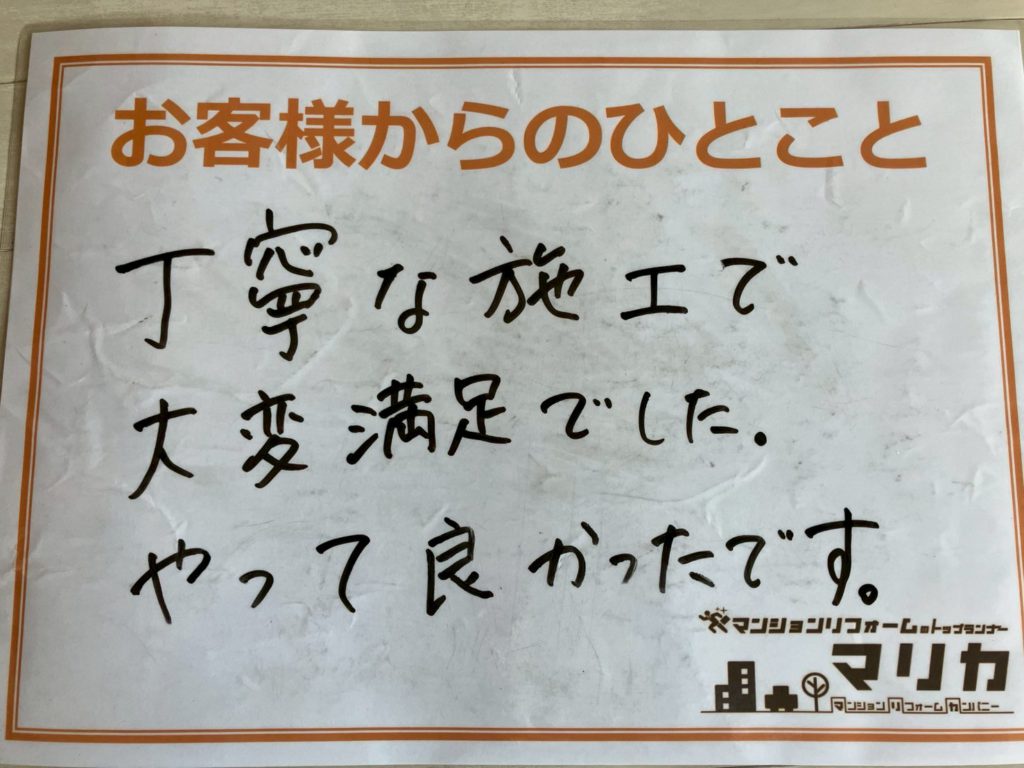 お客様からのひとこと
丁寧な施工で
大変満足でした.
やって良かったです。
マンションリフォームのトップランナー
マリカ
マンションリフォームカンパニー